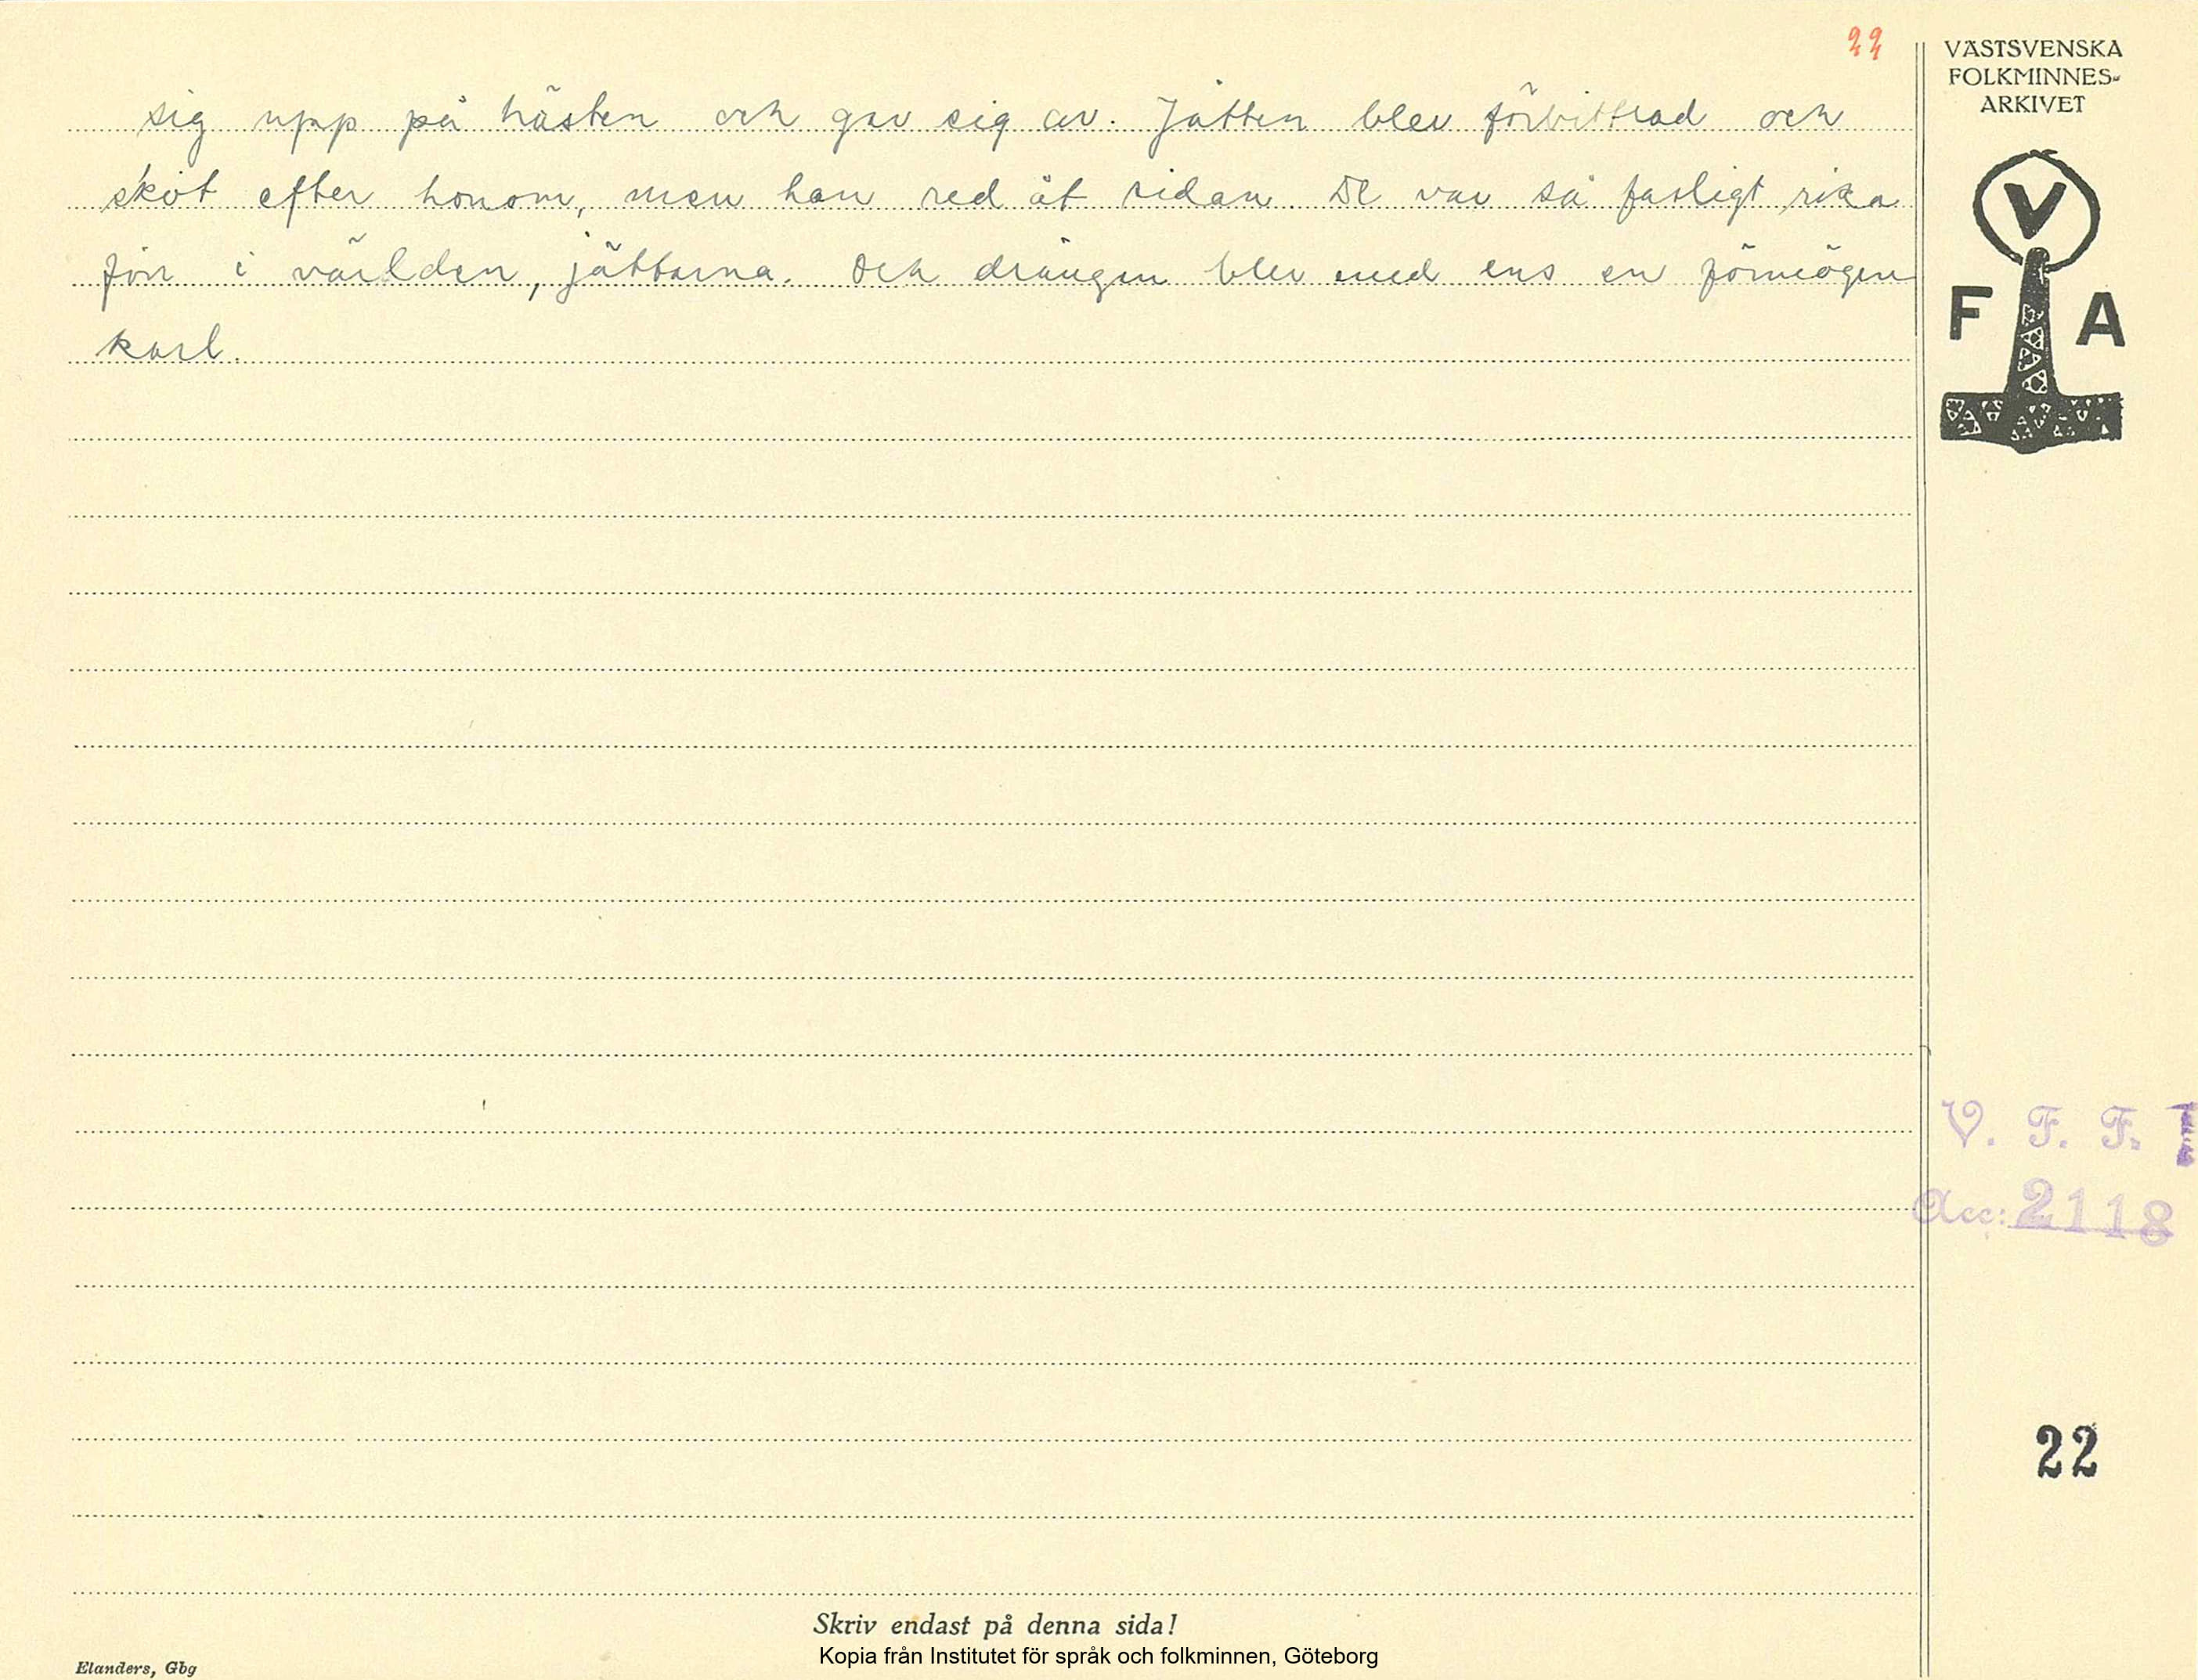 22
sig upp på hästen och gav sig av. Jätten blev förbittrad och
sköt efter honom, men han red åt sidan. De var så farligt rika
förr i världen, jättarna. Och drängen blev med ens en förmögen
karl.
VÄSTSVENSKA
FOLKMINNES-
ARKIVET
V
F A
V. F. F.
Acc: 2118
22
Skriv endast på denna sida!
Kopia från Institutet för språk och folkminnen, Göteborg
Elanders, Gbg